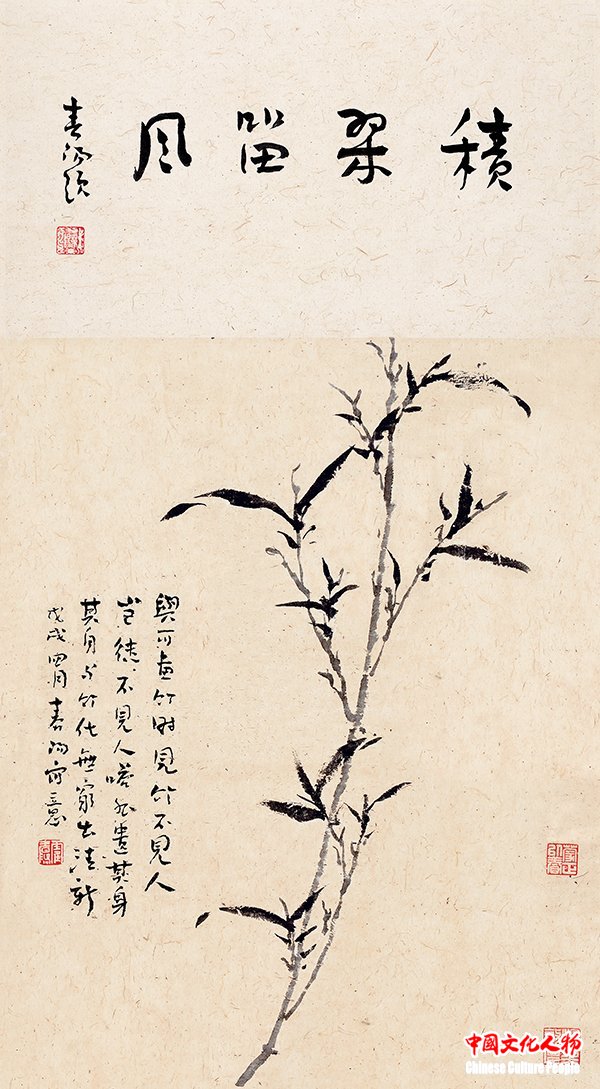 積翠留風
春題
與可畫竹時見竹不見人
豈徒不見人嗒然遺其身
其身与竹化無窮出清新
戊戌四月春寫意
中國文化人物
Chinese Culture People